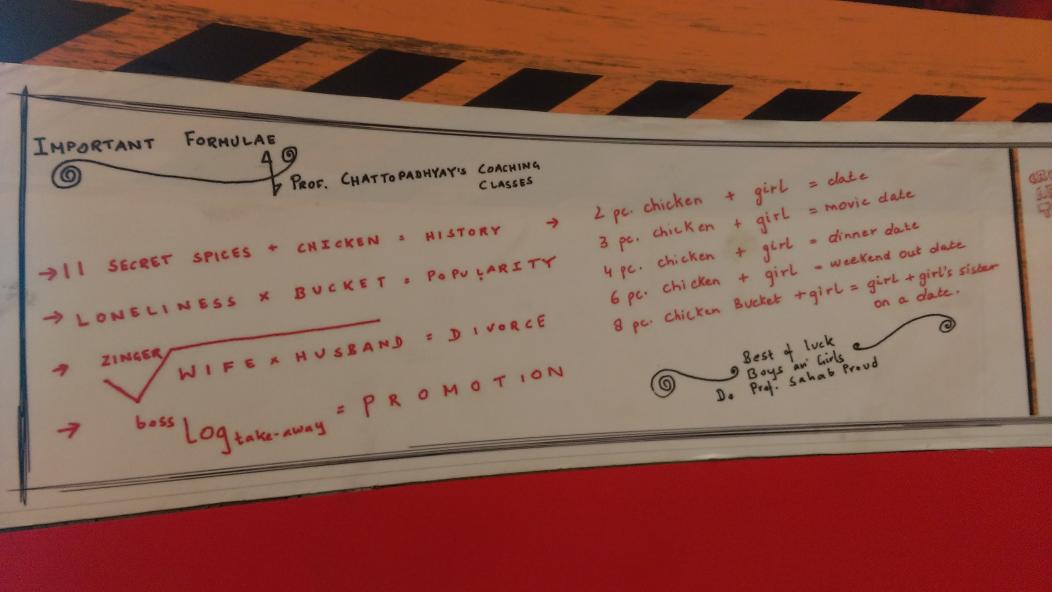 IMPORTANT FORMULAE
PROF. CHATTOPADHYAY'S COACHING
CLASSES
→ 11 SECRET SPICES + CHICKEN = HISTORY
→ LONELINESS × BUCKET = POPULARITY
→ ZINGER√WIFE × HUSBAND = DIVORCE
→ boss Log take-away = PROMOTION
→ 2 pc. chicken + girl = date
3 pc. chicken + girl = movie date
4 pc. chicken + girl = dinner date
6 pc. chicken + girl = weekend out date
8 pc. chicken Bucket + girl = girl + girl's sister
on a date.
Best of luck
Boys an' Girls
Do Prof. Sahab Proud